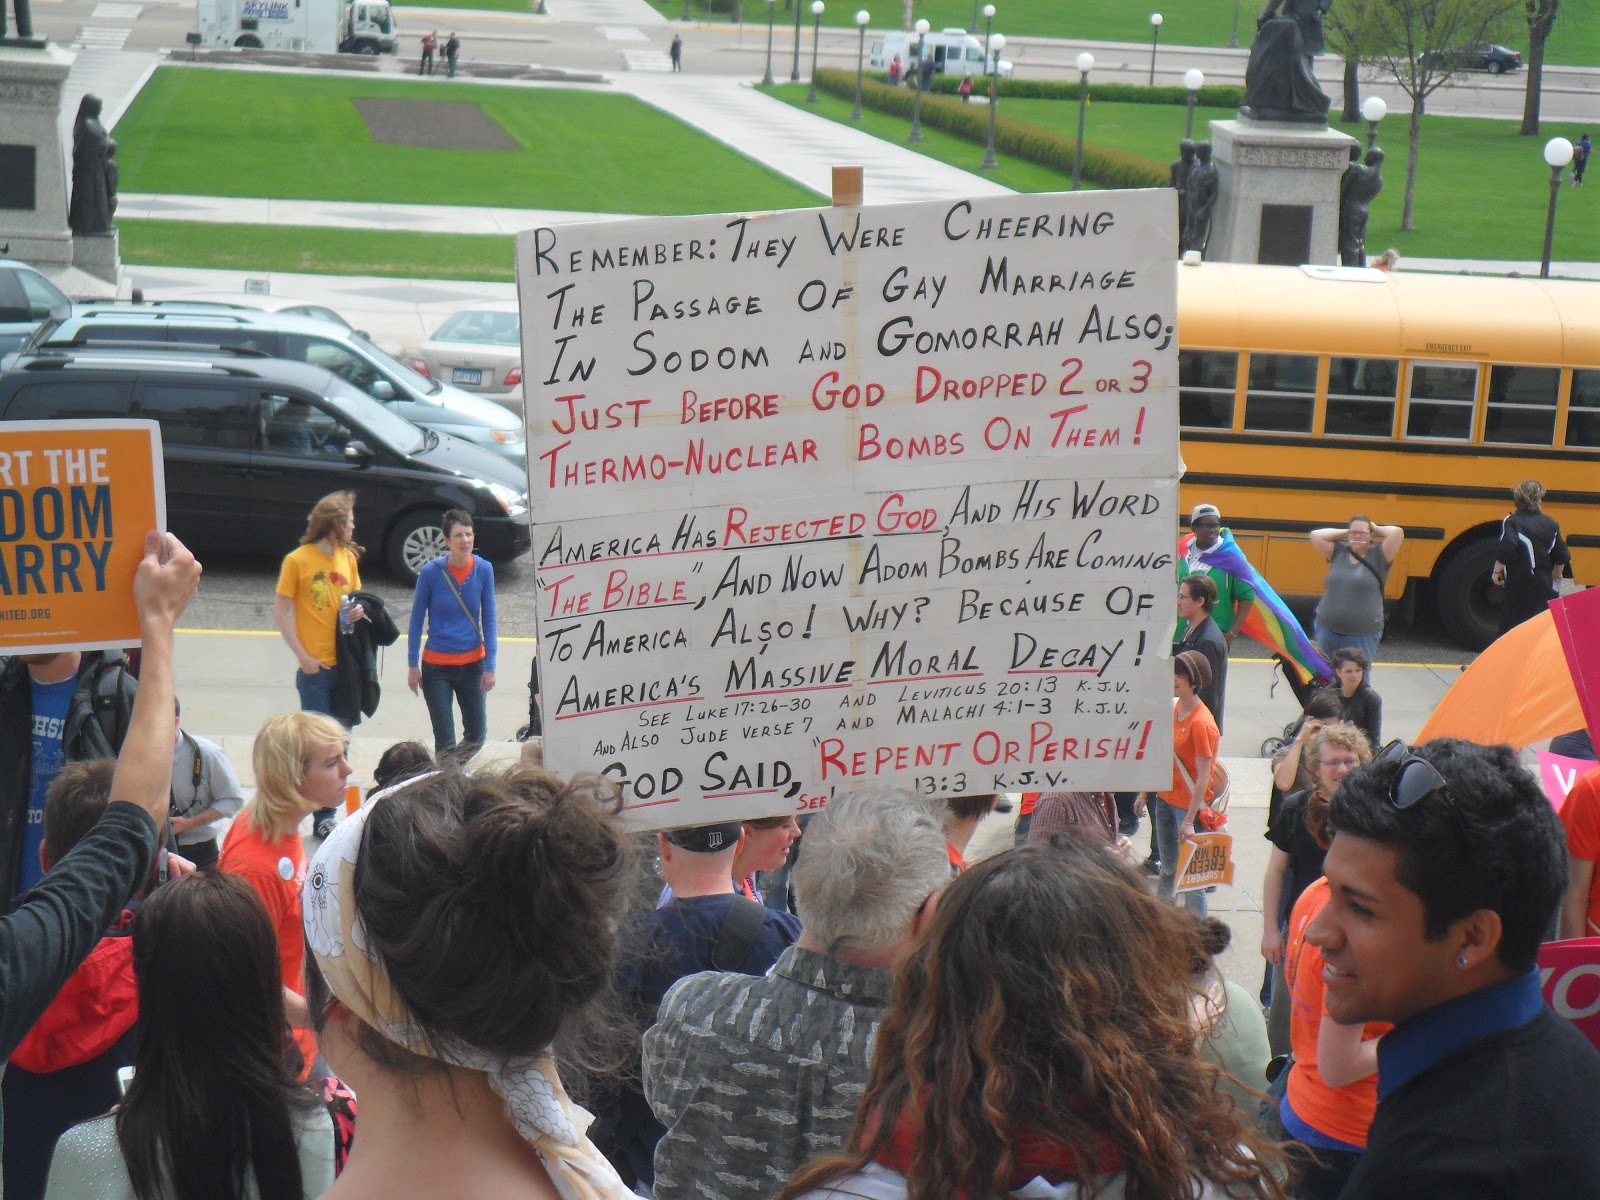 SKYLINK
REMEMBER: THEY WERE CHEERING
THE PASSAGE OF GAY MARRIAGE
IN SODOM AND GOMORRAH ALSO;
JUST BEFORE GOD DROPPED 2 OR 3
THERMO-NUCLEAR BOMBS ON THEM!
AMERICA HAS REJECTED GOD, AND HIS WORD
"THE BIBLE", AND NOW ADOM BOMBS ARE COMING
TO AMERICA ALSO! WHY? BECAUSE OF
AMERICA'S MASSIVE MORAL DECAY!
SEE LUKE 17:26-30 AND LEVITICUS 20:13 K.J.V.
AND ALSO JUDE VERSE 7 AND MALACHI 4:1-3 K.J.V.
GOD SAID, "REPENT OR PERISH"!
SEE 13:3 K.J.V.
RT THE
DOM
ARRY
NITED.ORG
EMERGENCY EXIT
I SUPPORT
FREED
TO MA
VO